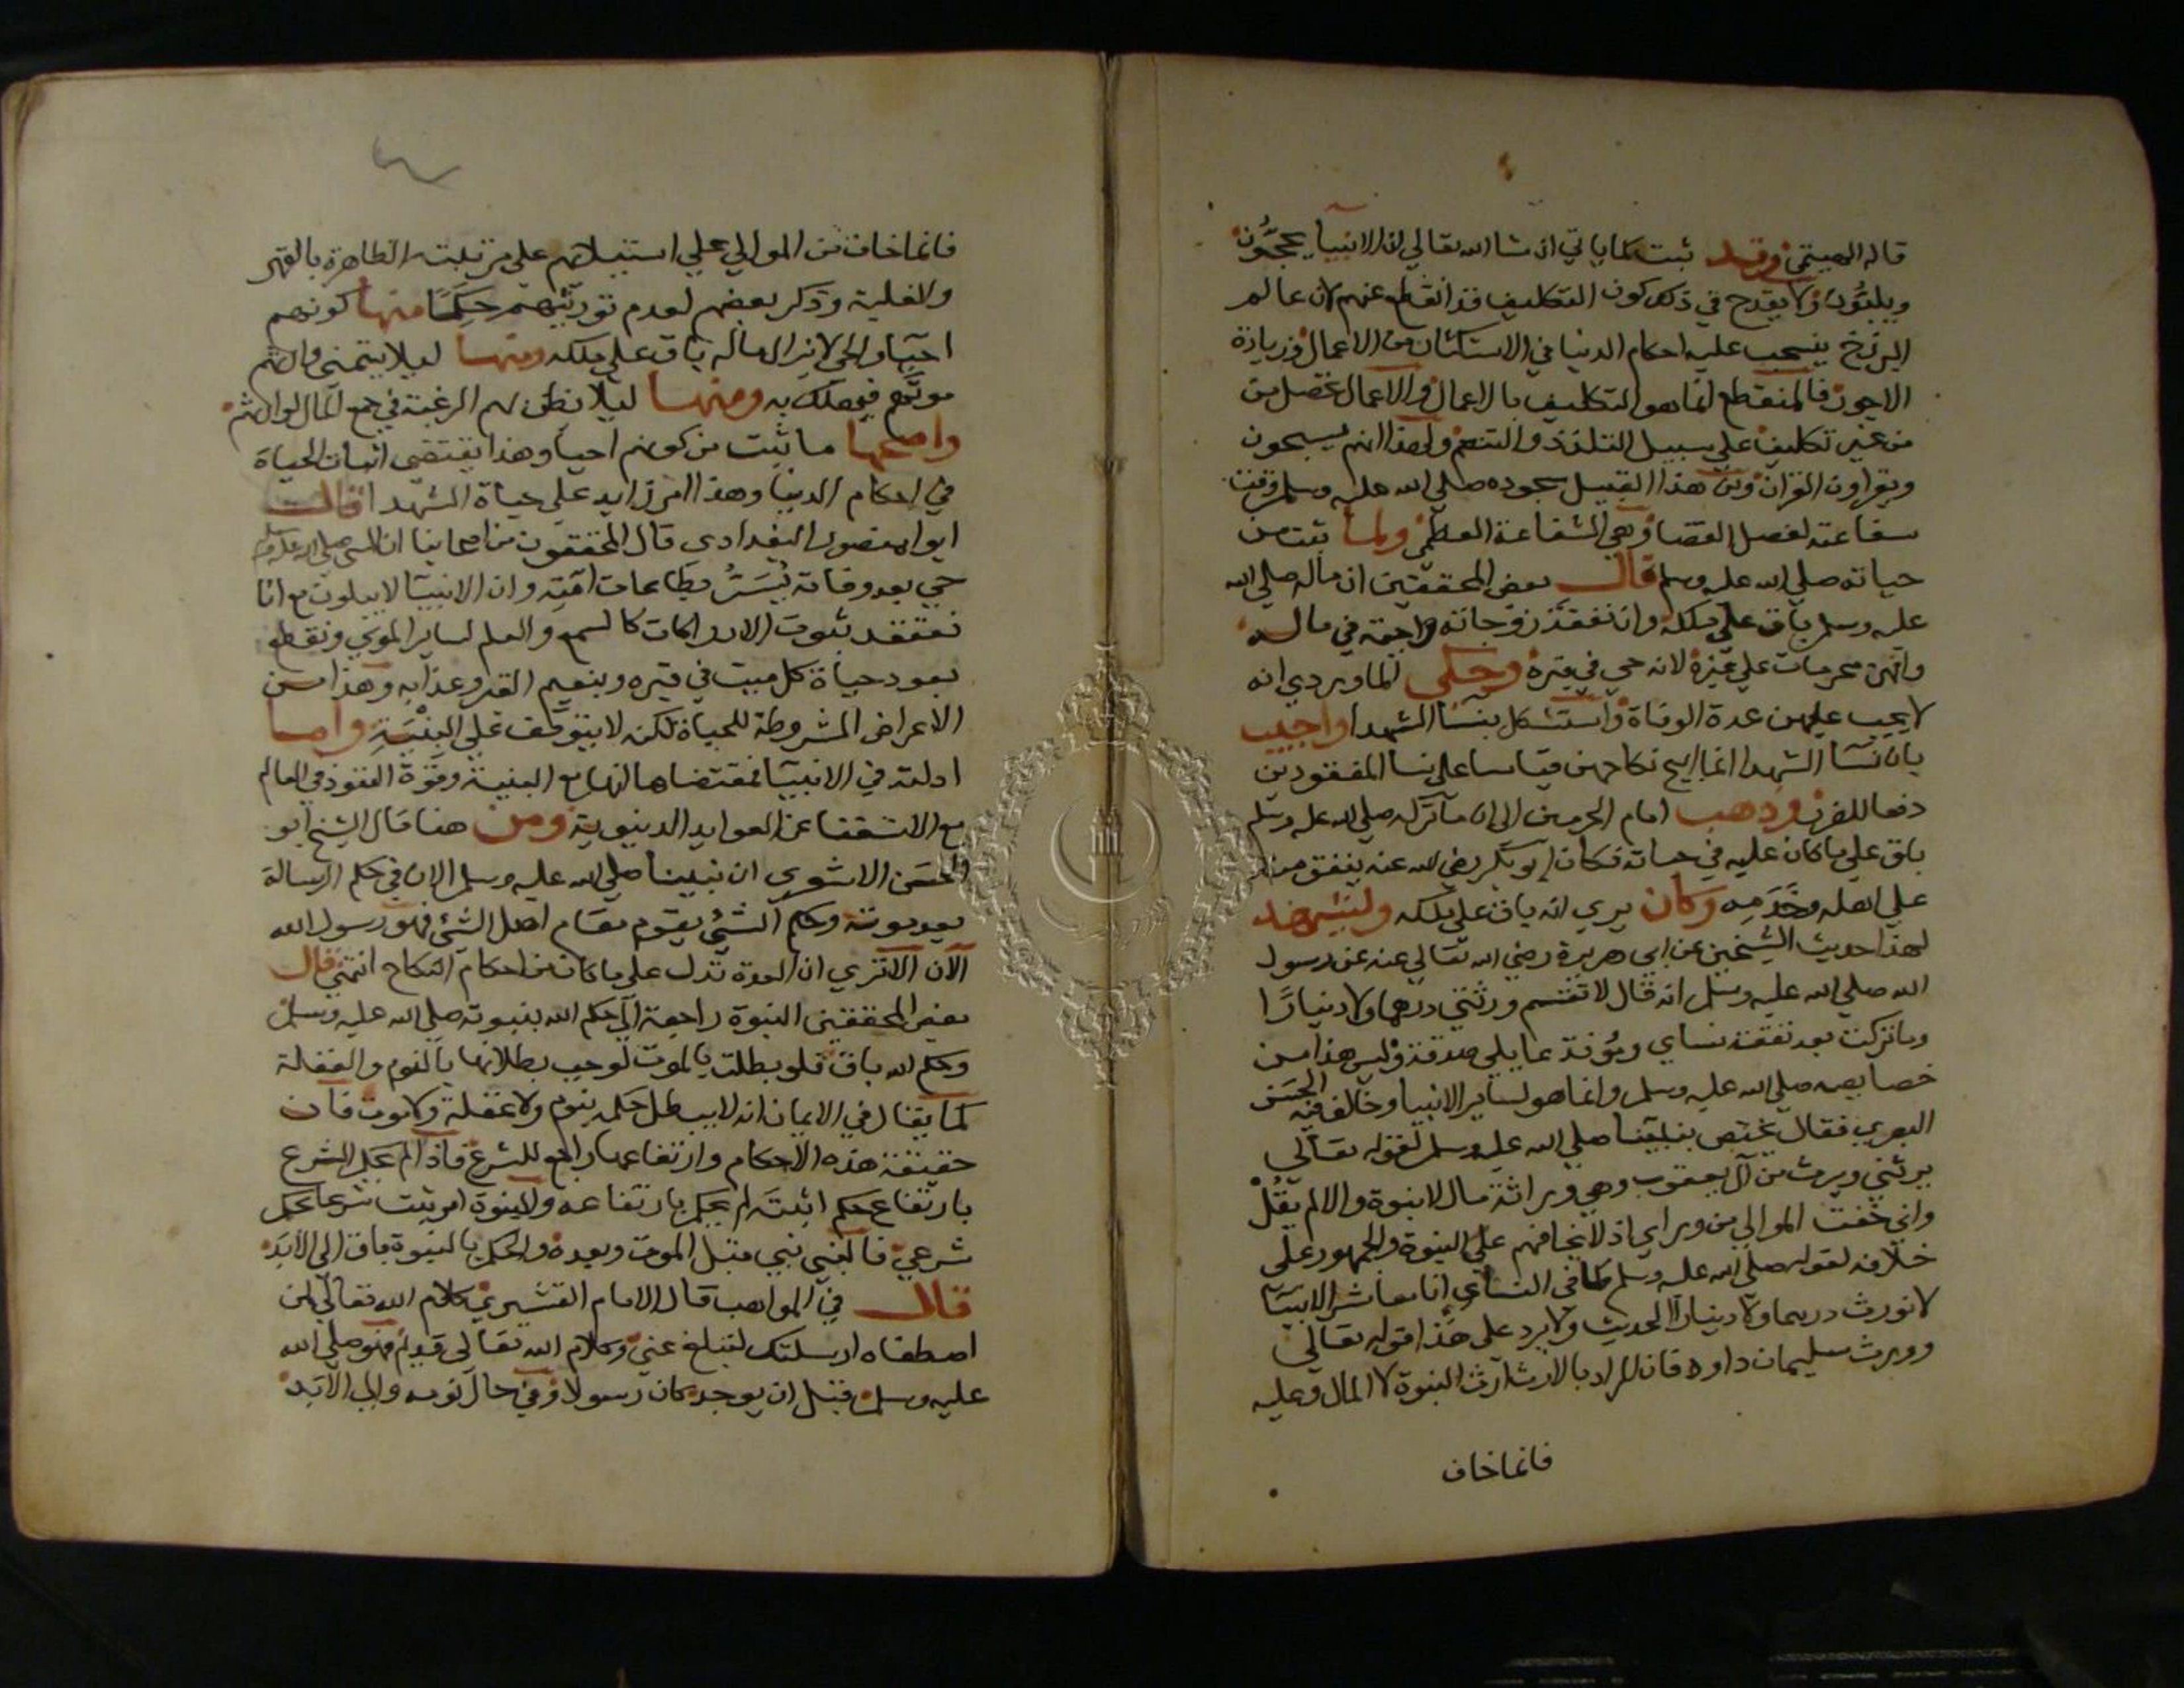 قاله الهيتمي وقد ثبت كما ياتي ان شا الله تعالي ان الانبيآ يحجُّون
ويلبُّون ولا يقدح في ذلك كون التكليف قد انقطع عنهم لان عالم
البرزخ ينسحب عليه احكام الدنيا في الاستكثار من الاعمال وزيادة
الاجور فالمنقطع انما هو التكليف بالاعمال والاعمال تحصل من
من غير تكليف علي سبيل التلذذ والتنعم ولهذا انهم يسبحون
ويقراون القران ومن هذا القبيل سجوده صلي الله عليه وسلم وقت
شفاعته لفصل القضا وهي الشفاعة العظمي ولما ثبت من
حياته صلي الله عليه وسلم قال بعض المحققين ان ماله صلي الله
عليه وسلم باق علي ملكه وان نفقة زوجاته واجبة في ماله
وانهن محرمات علي غيره لانه حي في قبره وحكي الماوردي انه
لا يجب عليهن عدة الوفاة واستشكل بنسا الشهدا واجيب
بان نسآ الشهدا انما ابيح نكاحهن قياسا علي نسا المفقودين
دفعا للضرر وذهب امام الحرمين الي ان ما تركه صلي الله عليه وسلم
باق علي ما كان عليه في حياته فكان ابو بكر رضي الله عنه ينفق منه
علي اهله وخَدَمِه وكان يري انه باق علي ملكه وليشهد
لهذا حديث الشيخين عن ابي هريرة رضي الله تعالي عنه عن رسول
الله صلي الله عليه وسلم انه قال لا تقتسم ورثتي درهما ولا دينارًا
وما تركت بعد نفقة نساي ومؤنة عاملي صدقة وليس هذا من
خصايصه صلي الله عليه وسلم وانما هو لساير الانبيا وخالف فيه الحسَن
البصري فقال تختص بنبيّنا صلي الله عليه وسلم لقوله تعالي
يرثني ويرث من آل يعقوب وهي وراثة مال لا نبوة والا لم يقُلْ
واني خفت الموالي من وراي اذ لا يخافهم علي النبوة والجمهور علي
خلافه لقوله صلي الله عليه وسلم كما في النساي انا معاشر الانبيآ
لا نورث درهما ولا دينارًا الحديث ولا يرد علي هذا قوله تعالي
وورث سليمان داود فان المراد بالارث ارث النبوة لا المال وعليه
فانما خاف
فانما خاف من الموالي علي استيلائهم علي مرتبته الظاهرة بالقهر
والغلبة وذكر بعضهم لعدم توريثهم حِكَمًا منها كونهم
احيآ والحي لا يزال ماله باق علي ملكه ومنها ليلا يتمني وارثهم
موتهم فيهلك به ومنها ليلا يظن بهم الرغبة في جمع المال لوارثهم
واصحها ما ثبت من كونهم احيا وهذا يقتضي اثبات الحياة
في احكام الدنيا وهذا امر زايد علي حياة الشهدا قال
ابوا منصور البغدادي قال المحققون من اصحابنا ان النبي صلي الله عليه وسلم
حي بعد وفاته يُسَرُّ بطاعات امّته وان الانبيآ لا يبلون مع انا
نعتقد ثبوت الادراكات كالسمع والعلم لساير الموتي ونقطع
بعود حياة كل ميت في قبره وبنعيم القبر وعذابه وهذا من
الاعراض المشروطة للحياة لكن لا يتوقف علي البِنْيَةِ واما
ادلته في الانبيآ فمقتضاها انها مع البنية وقوة النفوذ في العالم
مع الاستغنا عن العوايد الدنيوية ومن هنا قال الشيخ ابو
الحسَن الاشعري ان نبينا صلي الله عليه وسلم الان في حكم الرسالة
بعد موته وحكم الشئ يقوم مقام اصل الشئ فهو رسول الله
الآن الا تري ان العدة تدل علي ما كان من احكام النكاح انتهي قال
بعض المحققين النبوة راجعة الي حكم الله بنبوته صلي الله عليه وسلم
وحكم الله باق فلو بطلت بالموت لوجب بطلانها بالنوم والغفلة
كما يقال في الايمان انه لا يبطل حكمه بنوم ولا غفلة ولا موت فان
حقيقة هذه الاحكام وارتفاعها راجع للشرع فاذا لم يحكم الشرع
بارتفاع حكم اثبتَه لم يحكم بارتفاعه والنبوة امر ثبت شرعا بحكم
شرعي فالنبي نبي قبل الموت وبعده والحكم بالنبوة باق الي الابد
قال في المواهب قال الامام القشيري كلام الله تعالي لمن
اصطفاه ارسلتك لتبلغ عني وكلام الله تعالي قديم فهو صلي الله
عليه وسلم قبل ان يوجد كان رسولا وفي حال نومه والي الابد